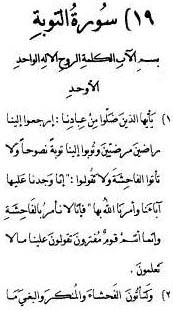 ١٩) سورة التوبة
بسم الآب الكلمة الروح الإله الواحد
الأوحد
١) يأيها الذين ضلوا من عبادنا: إرجعوا إلينا
راضين مرضيين وتوبوا إلينا توبة نصوحا ولا
تأتوا الفاحشة ولا تقولوا: "إنا وجدنا عليها
آباءنا وأمرنا الله بها" فإنا لا نأمر بالفاحشة
وإنما أنتم قوم مفترون تقولون علينا ما لا
تعلمون.
٢) وتأتون الفحشاء والمنكر والبغي ما